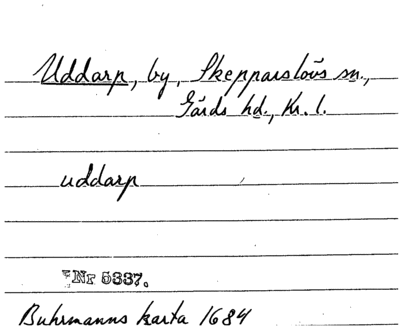 Uddarp, by, Skepparslövs sn.,
Gärds hd., Kr. l.
uddarp
Nr 5337.
Buhrmanns karta 1684